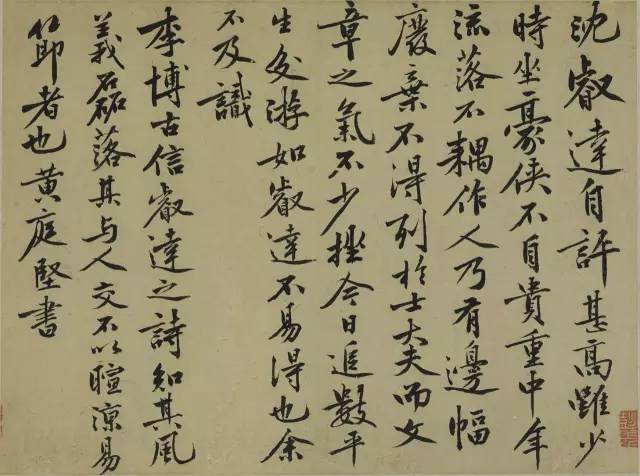 沈叡達自評甚高雖少
時坐豪俠不自貴重中年
流落不耦作人乃有邊幅
廢棄不得列於士大夫而文
章之氣不少挫今日追數平
生交游如叡達不易得也余
不及識
李博古信叡達之詩知其風
義磊落其与人交不以暄凉易
節者也黄庭堅書